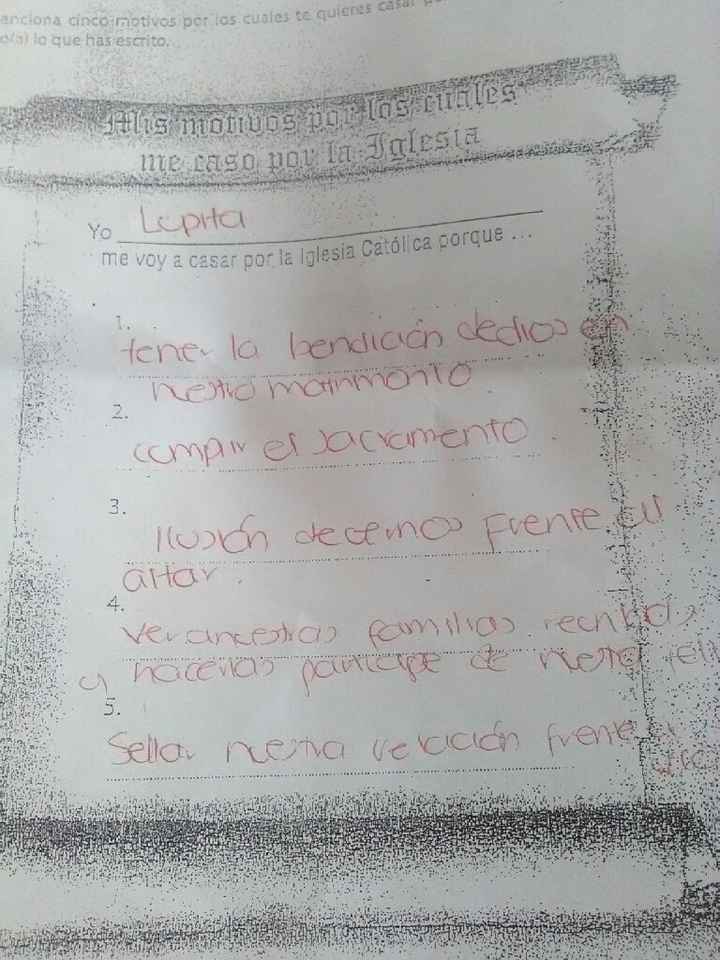 enciona cinco motivos por los cuales te quieres casar
o(a) lo que has escrito.
Mis motivos por los cuales
me caso por la Iglesia
Yo Lupita
me voy a casar por la Iglesia Católica porque ...
1.
tener la bendición de dios en
nuestro matrimonio
2.
cumplir el sacramento
3.
Ilusión de cernos frente al
altar.
4.
Ver a nuestras familias reunidas
y hacerlas participe de nuestra feli
5.
Sellar nuestra relación frente